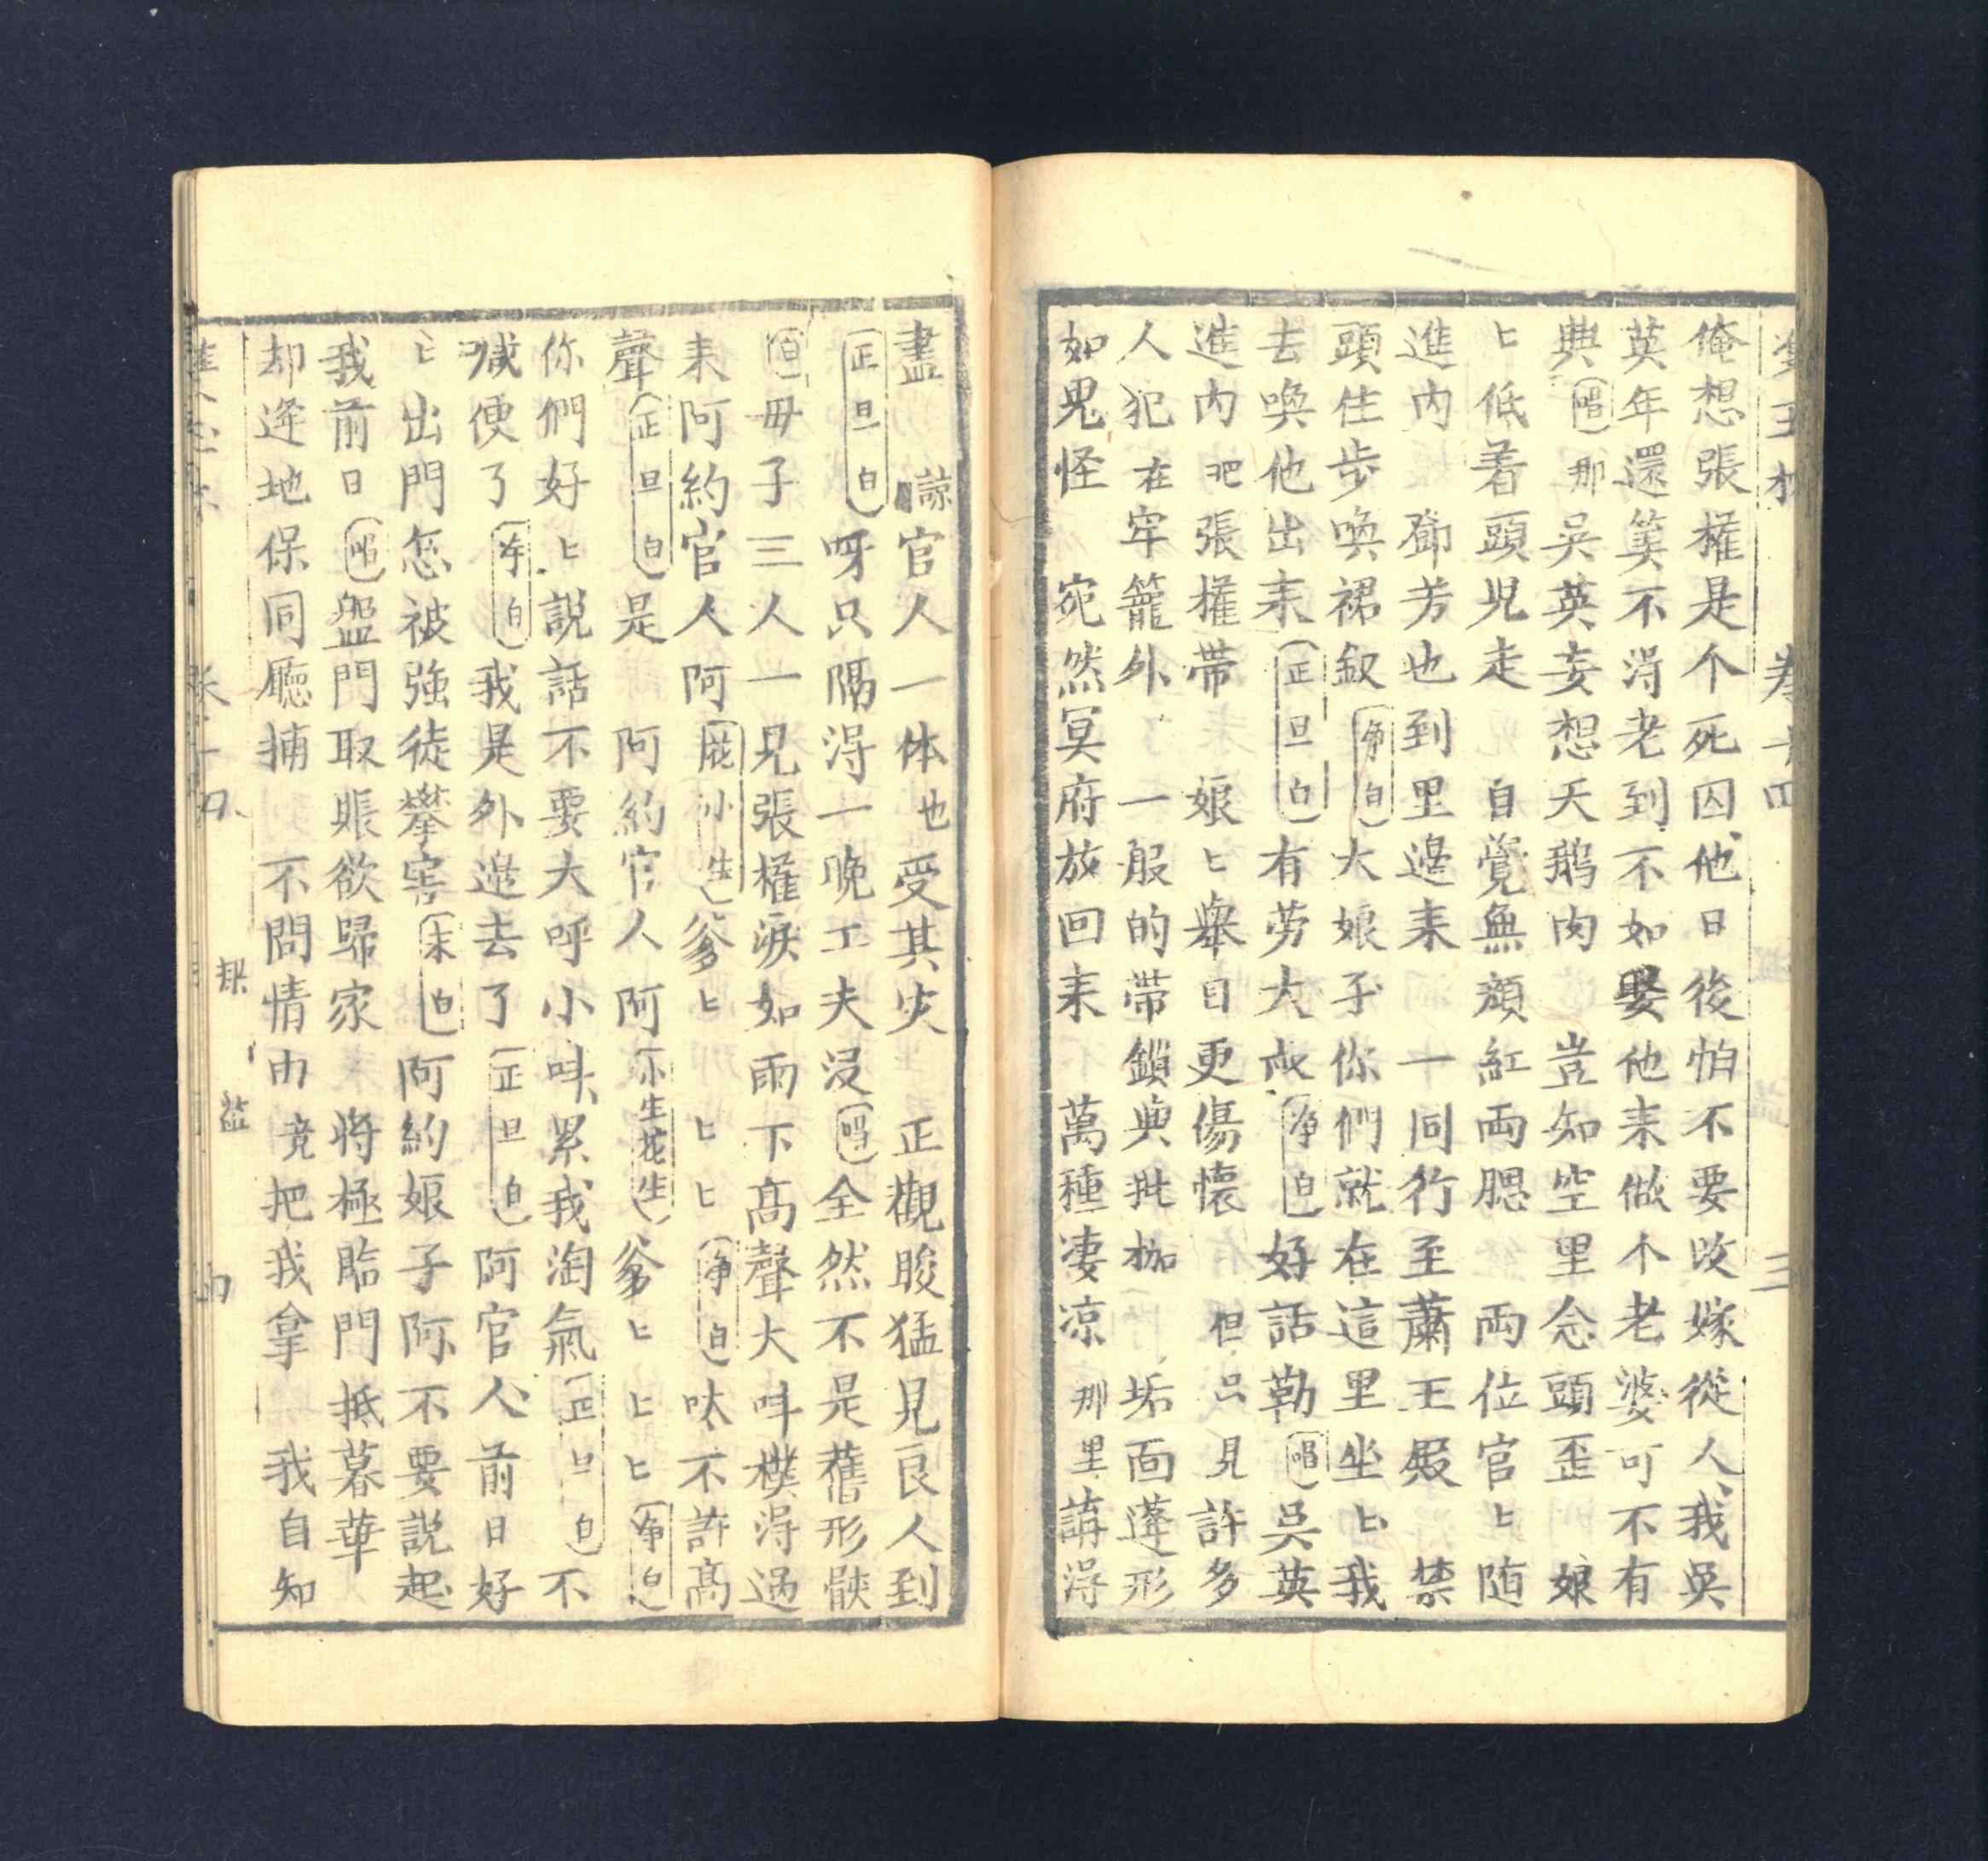 雙玉杯 卷十四 三
俺想張權是个死囚他日後怕不要改嫁從人我吳
英年還筭不淂老到不如娶他来做个老婆可不有
興(唱)那吳英妄想天鵝肉 豈知空里念頭歪 娘
匕低着頭児走 自覺無顔紅両腮 両位官匕随
進内 鄧芳也到里邉来 一同行至蕭王殿 禁
頭住歩喚裙釵(净白)大娘子你們就在這里坐匕我
去喚他出来(正旦白)有劳大叔(净白)好話勒(唱)吳英
進内吧張權帶 娘匕舉目更傷懷 但只見許多
人犯在牢籠外 一般的帶鎖與批枷 垢面蓬形
如鬼怪 宛然冥府放回来 萬種凄凉那里講淂
盡 諒官人一体也受其灾 正觀睃猛見良人到
(正旦白)呀只隔淂一晚工夫没(唱)全然不是舊形骸
(白)毋子三人一見張權淚如雨下高聲大呌樸淂過
来阿約官人阿(小生)爹匕匕匕(净白)呔不許高
聲(正旦白)是 阿約官人阿(小生花生)爹匕匕匕(净白)
你們好匕説話不要大呼小呌累我淘氣(正旦白)不
喊便了(净白)我是外邉去了(正旦白)阿官人前日好
匕出門怎被強徒攀害(末白)阿約娘子阿不要説起
我前日(唱)盤門取賬欲歸家 將極臨門抵暮華
却逢地保同廳捕 不問情由竟把我拿 我自知